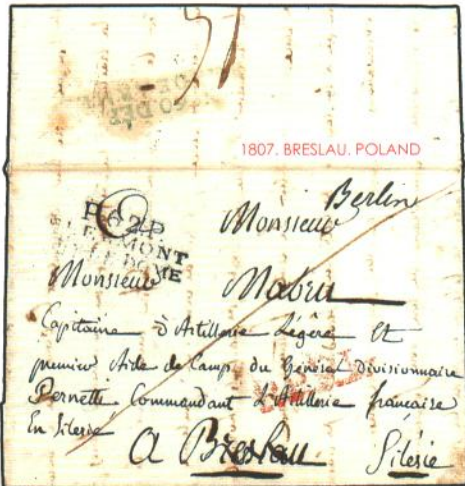 1807. BRESLAU. POLAND
Berlin
P62P
Monsieur
CLERMONT
Monsieur Mabru
Capitaine d'Artillerie Légère Et
premier Aide de Camp du Général Divisionnaire
Pernetti Commandant l'Artillerie française
En Silésie
A Breslau Silésie